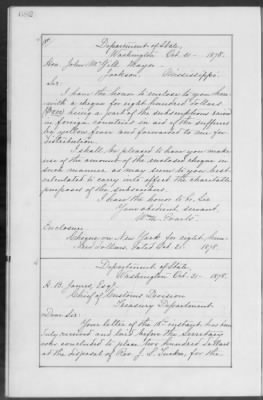 682
Department of State,
Washington Oct. 21- 1878.
Hon. John McGill Mayor -
Jackson, Mississippi.
Sir:
I have the honor to enclose to you here-
with a cheque for eight hundred dollars
being a part of the subscriptions raised
in foreign countries in aid of the sufferers
by yellow fever and forwarded to me for
distribution.
I shall be pleased to have you make
use of the amount of the enclosed cheque in
such manner as may seem to you best
calculated to carry into effect the charitable
purposes of the subscribers.
I have the honor to be, Sir
Your obedient servant,
Wm. M. Evarts.
Enclosure:
Cheque on New York for eight hun-
dred dollars, dated Oct. 21 1878.
Department of State
Washington Oct. 21- 1878.
H. B. James, Esq.
Chief of Customs Division
Treasury Department.
Dear Sir:
Your letter of the instant has been
duly received and laid before the Secretary
who concluded to place two hundred dollars
at the disposal of Rev. J. L. Tucker, for the